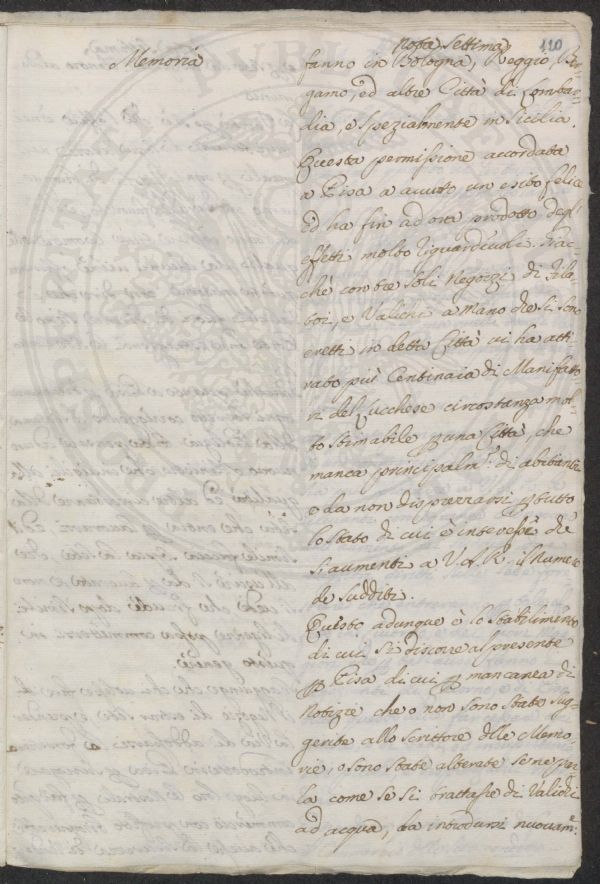 Nota Settima
110
Memoria
fanno in Bologna, Reggio, Ber-
gamo, ed altre Città di Lombar-
dia, e spezialmente in Sicilia.
Questa permissione accordata
a Pisa a avuto un esito felice
ed ha fin ad ora prodotto degl'
effetti molto riguardevoli. Giac-
chè con tre soli Negozzi di Fila-
toi, e Valichi a Mano che si sono
eretti in detta Città vi ha atti-
rato più Centinaia di Manifatto-
ri del Lucchese circostanza mol-
to stimabile p una Città, che
manca principalmte. di abitanti
e da non disprezzarsi p tutto
lo Stato di cui è interesse che
si aumenti a V.A.R. il Numero
de Sudditi.
Questo adunque è lo Stabilimento
di cui si discorre al presente
p Pisa di cui p mancanza di
Notizie che o non sono state sug-
gerite allo scrittore dlle Memo-
rie, o sono state alterate se ne par-
la come se si trattasse di Valichi
ad acqua, da introdursi nuovame.